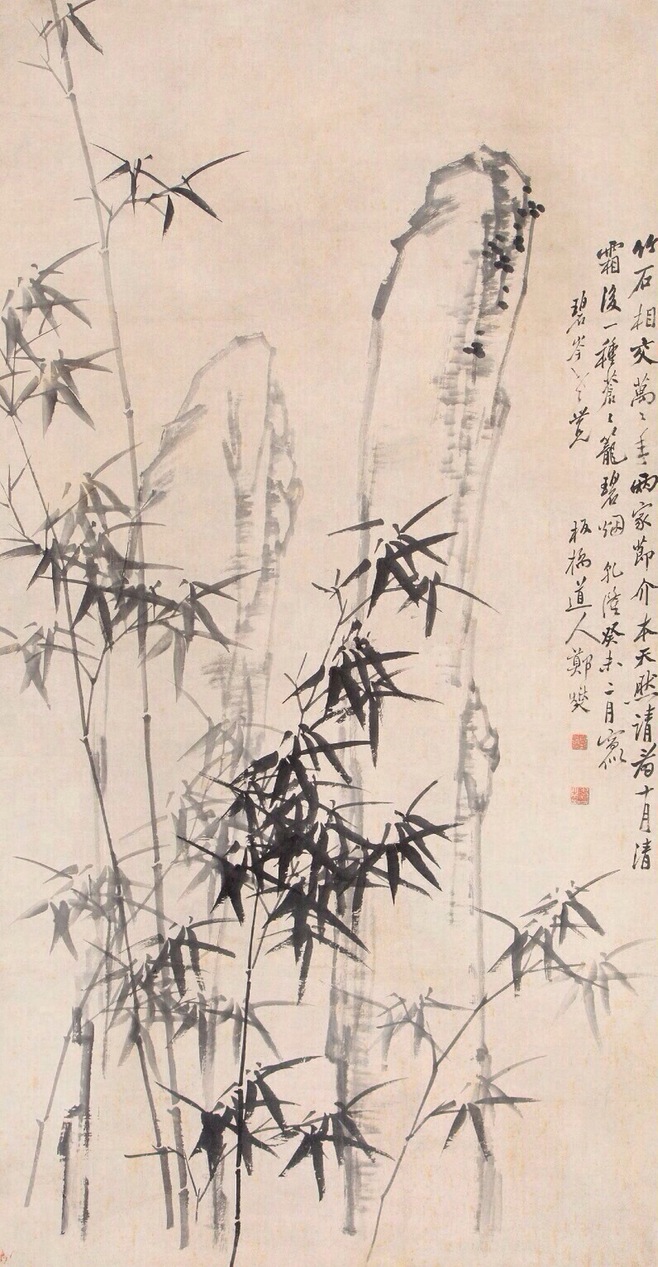 竹石相交萬〻年兩家節介本天然請看十月清
霜後一種蒼〻籠碧烟 乾隆癸未二月寫
碧岑 板橋道人鄭燮